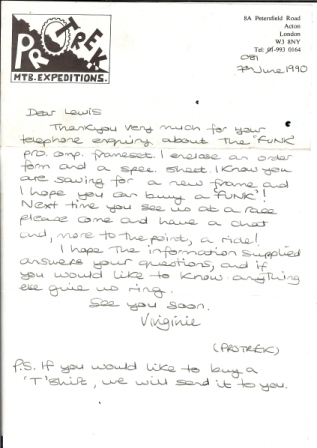 PROTREK
MTB. EXPEDITIONS.
8A Petersfield Road
Acton
London
W3 8NY
Tel: 01-993 0164
081
7th June 1990
Dear Lewis
Thankyou very much for your
telephone enquiry about the "FUNK"
pro. comp. frameset. I enclose an order
form and a spec. sheet. I know you
are saving for a new frame and
I hope you can buy a 'FUNK'!
Next time you see us at a race
please come and have a chat
and, more to the point, a ride!
I hope the information supplied
answers your questions, and if
you would like to know anything
else give us ring.
See you soon.
Virginie
(PROTREK)
P.S. If you would like to buy a
'T' Shirt, we will send it to you.